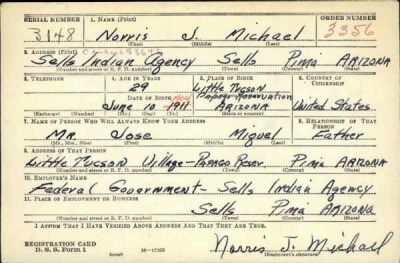 SERIAL NUMBER 1. NAME (Print) ORDER NUMBER
3148 Norris J. Michael 3356
(First) (Middle) (Last)
2. ADDRESS (Print)
Sells Indian Agency Sells Pima ARIZONA
(Number and street or R. F. D. number) (Town) (County) (State)
3. TELEPHONE 4. AGE IN YEARS 5. PLACE OF BIRTH 6. COUNTRY OF CITIZENSHIP
29 Little Tucson
DATE OF BIRTH Papago Reservation
June 10 1911 ARIZONA United States
(Mo.) (Day) (Yr.) (State or country)
7. NAME OF PERSON WHO WILL ALWAYS KNOW YOUR ADDRESS 8. RELATIONSHIP OF THAT PERSON
Mr. Jose Miguel Father
(Mr., Mrs., Miss) (First) (Middle) (Last)
9. ADDRESS OF THAT PERSON
Little Tucson Village - Papago Reser. Pima ARIZONA
(Number and street or R. F. D. number) (Town) (County) (State)
10. EMPLOYER'S NAME
Federal Government - Sells Indian Agency
11. PLACE OF EMPLOYMENT OR BUSINESS
Sells Pima ARIZONA
(Number and street or R. F. D. number) (Town) (County) (State)
I AFFIRM THAT I HAVE VERIFIED ABOVE ANSWERS AND THAT THEY ARE TRUE.
REGISTRATION CARD
D. S. S. Form 1 16-17105 Norris J. Michael
(Registrant's signature)